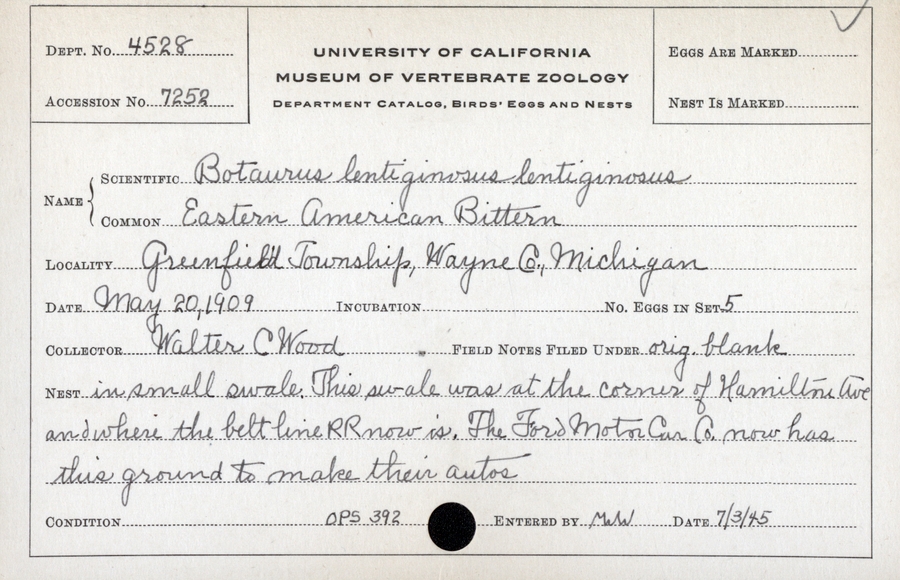 DEPT. No. 4528
ACCESSION No. 7252
UNIVERSITY OF CALIFORNIA
MUSEUM OF VERTEBRATE ZOOLOGY
DEPARTMENT CATALOG, BIRDS' EGGS AND NESTS
EGGS ARE MARKED
NEST IS MARKED
NAME
SCIENTIFIC Botaurus lentiginosus lentiginosus
COMMON Eastern American Bittern
LOCALITY Greenfield Township, Wayne Co., Michigan
DATE May 20, 1909 INCUBATION No. EGGS IN SET 5
COLLECTOR Walter C Wood FIELD NOTES FILED UNDER orig. blank
NEST in small swale. This swale was at the corner of Hamilton Ave
and where the belt line RR now is. The Ford Motor Car Co. now has
this ground to make their autos
CONDITION OPS 392 ENTERED BY MWW DATE 7/3/45